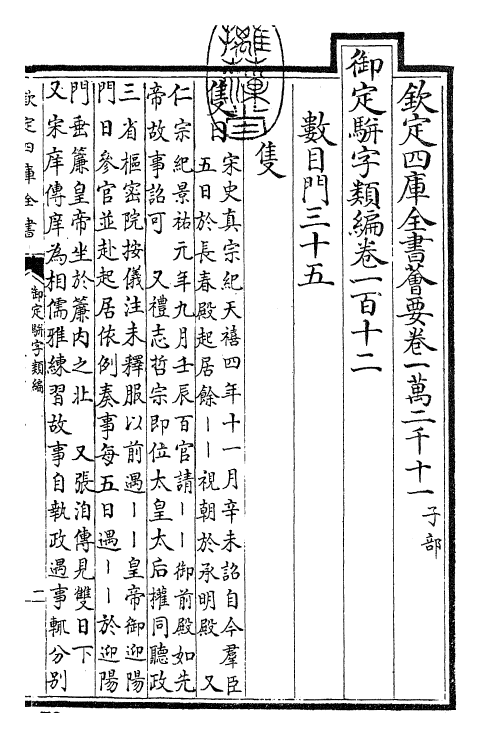 欽定四庫全書薈要卷一萬二千十一 子部
御定駢字類編卷一百十二
數目門三十五
隻
隻日 宋史真宗紀天禧四年十一月辛未詔自今羣臣
五日於長春殿起居餘丨丨視朝於承明殿 又
仁宗紀景祐元年九月壬辰百官請丨丨御前殿如先
帝故事詔可 又禮志哲宗即位太皇太后權同聽政
三省樞密院按儀注未釋服以前遇丨丨皇帝御迎陽
門日參官並赴起居依例奏事每五日遇丨丨於迎陽
門垂簾皇帝坐於簾内之北 又張洎傳見雙日下
又宋庠傳庠為相儒雅練習故事自執政遇事輒分别
欽定四庫全書
御定駢字類編